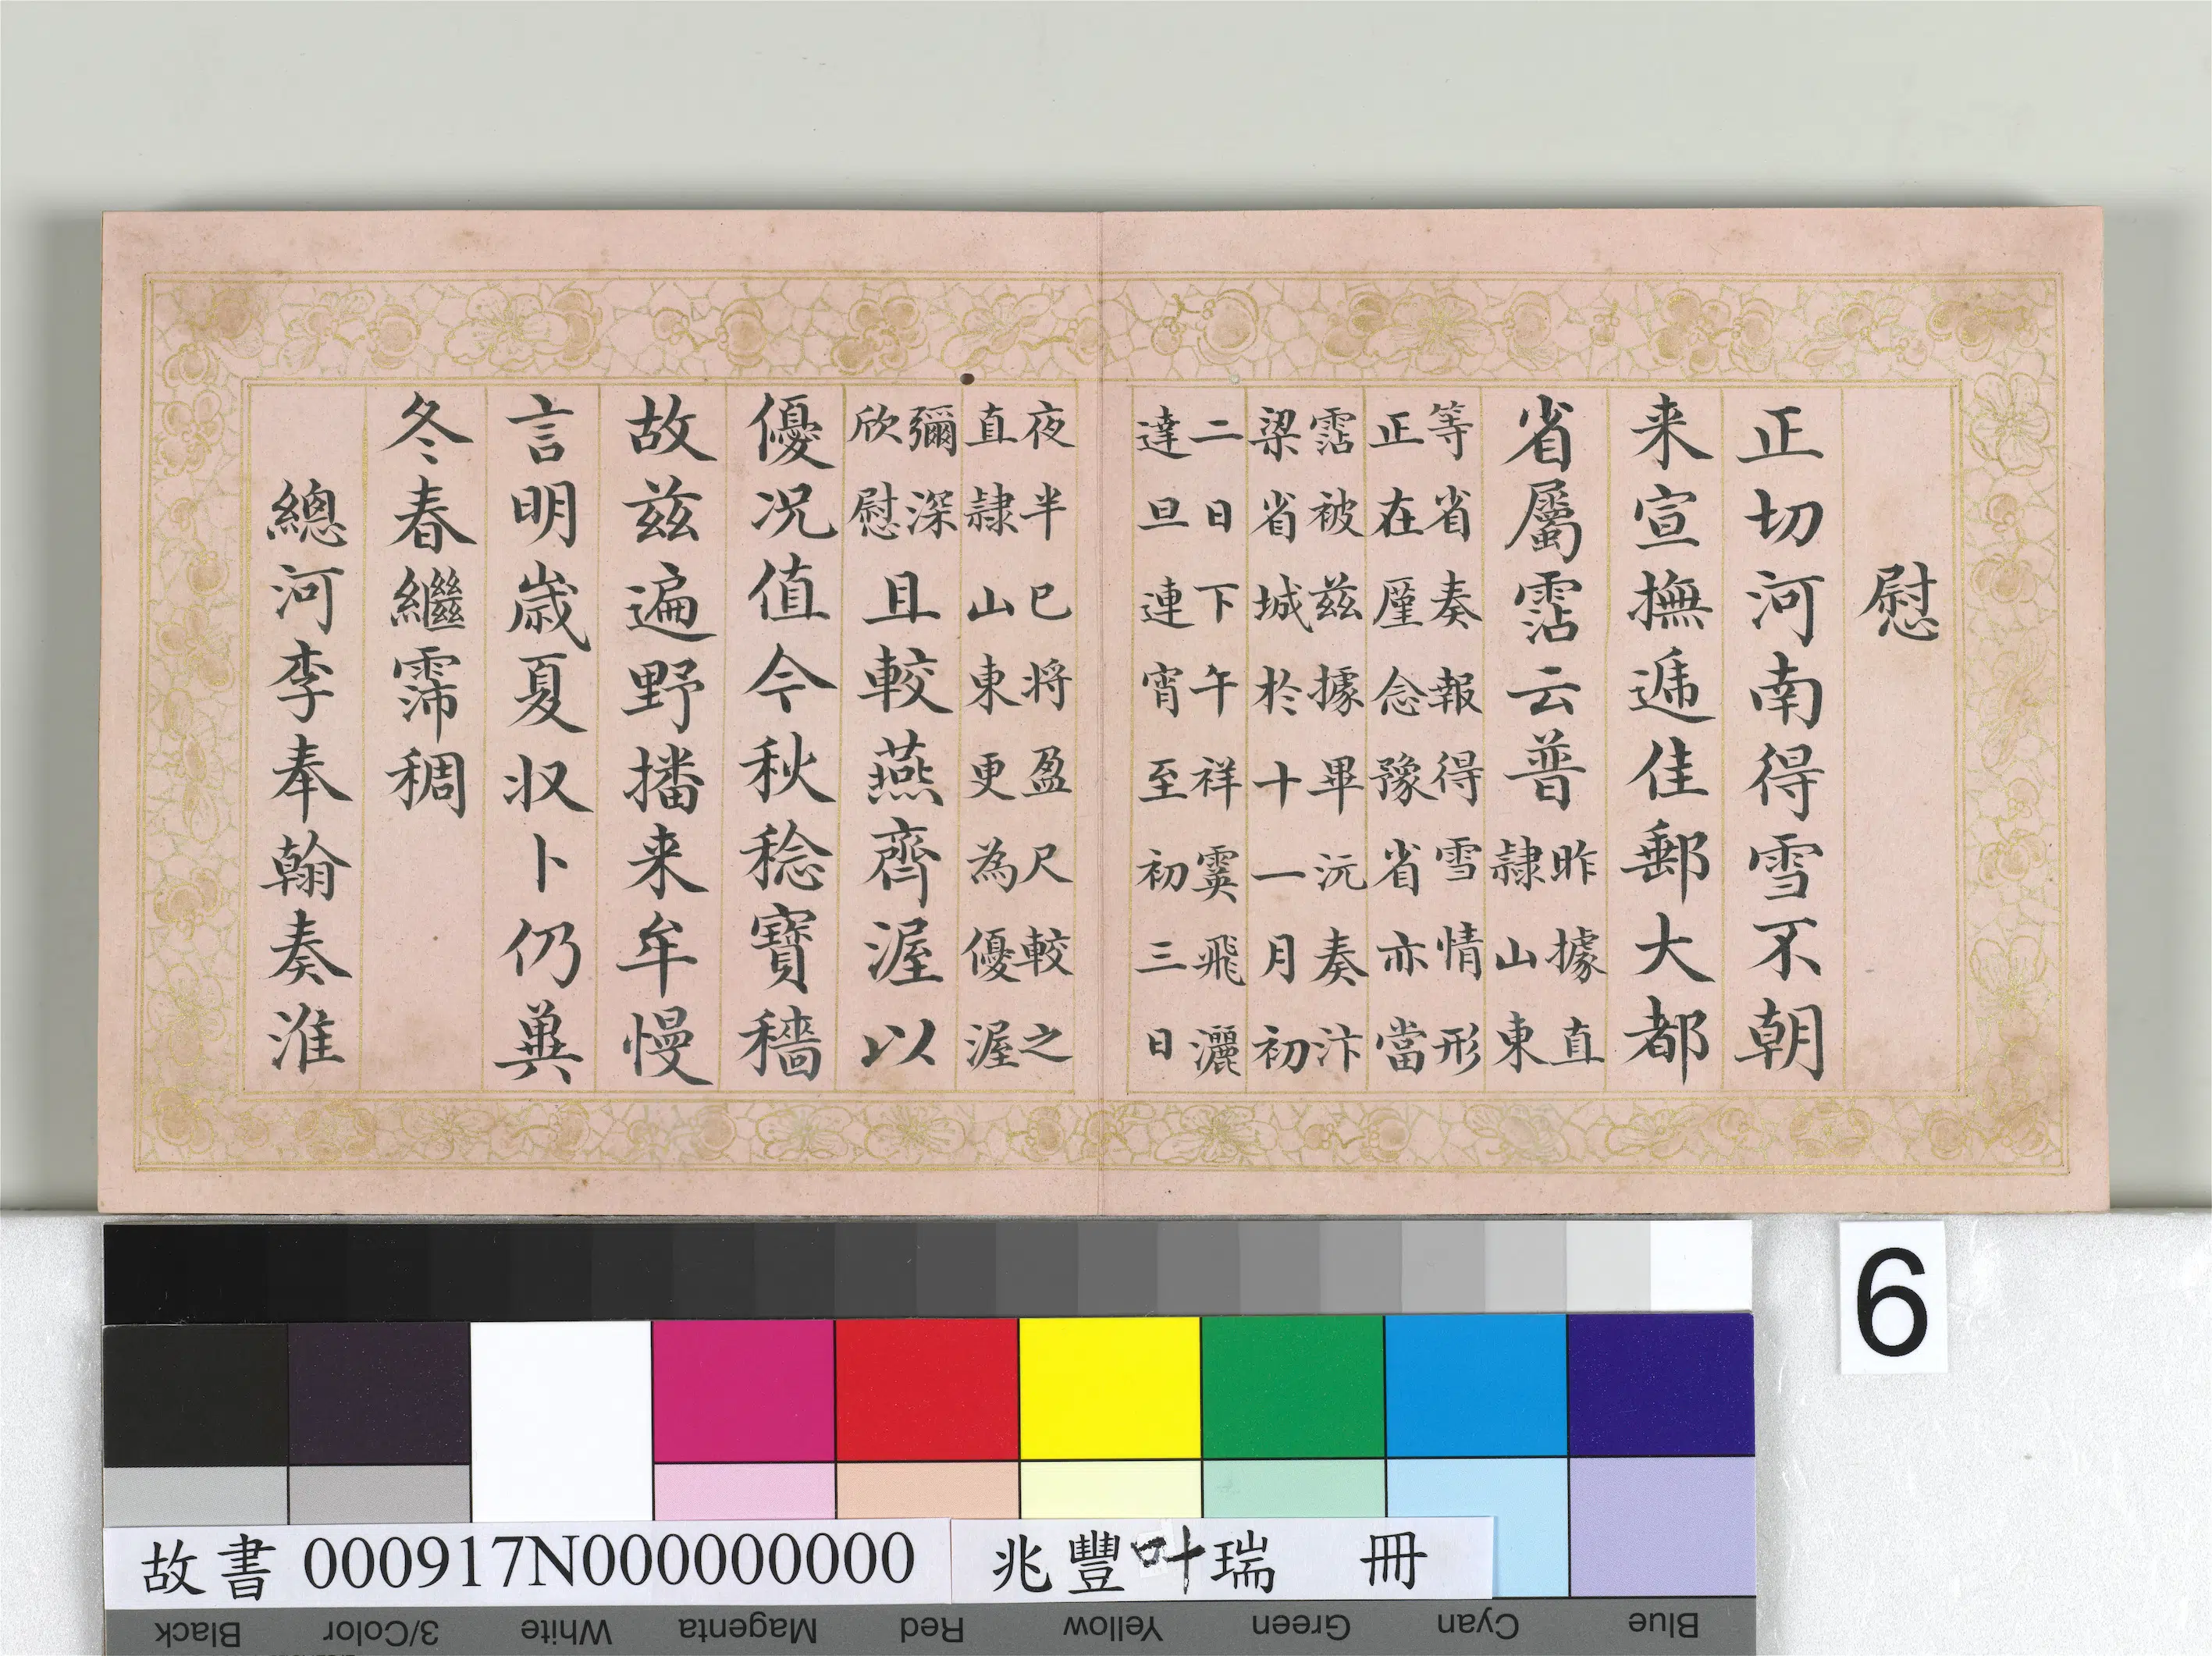 慰
正切河南得雪不朝
来宣撫遞佳郵大都
省屬霑云普
昨據直
隷山東
等省奏報得雪情形
正在廑念豫省亦當
霑被兹據畢沅奏汴
梁省城於十一月初
二日下午祥霙飛灑
達旦連宵至初三日
夜半已将盈尺較之
直隷山東更為優渥
彌深
欣慰
且較燕齊渥以
優况值今秋稔寶穡
故兹遍野播来牟慢
言明歳夏収卜仍兾
冬春繼霈稠
總河李奉翰奏淮
6
故書 000917N000000000
兆豐叶瑞 冊
Black 3/Color White Magenta Red Yellow Green Cyan Blue